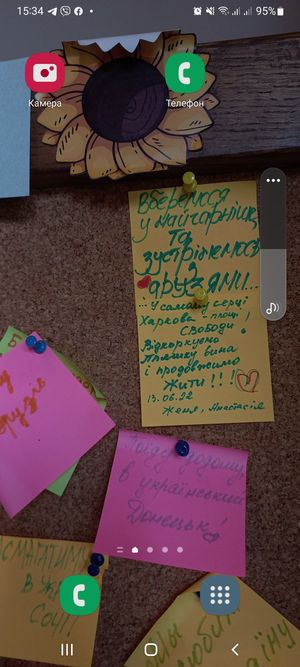 15:34
95%
Камера
Телефон
Вберемося
у найгарніше
та
зустрінемося
з
друзями...
...У самому серці
Харкова – площі
Свободи!
Відкоркуємо
пляшку вина
і продовжимо
жити!!!
13.06.22
Женя, Анастасія
друзів
Поїду додому,
в український
Донецьк!
в